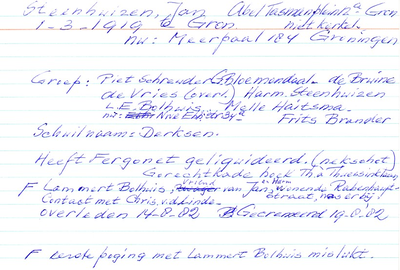 Steenhuizen, Jan Abel Tasmanplein 2a Gron
1-3-1919 te Gron. niet kerkel.
nu: Meerpaal 184 Groningen
Groep: Piet Schreuder Bloemendaal - de Bruine
de Vries (overl.) Harm. Steenhuizen
L.E. Bolhuis... Melle Haitsma -
nu: Frits Brander
Schuilnaam: Derksen.
Heeft Fergonet geliquideerd. (nekschot)
Gorechtkade hoek Th. a Thuessinklaan
F Lammert Bolhuis, vriend van Jan, en Harm wonende Rabenhaupt-
Contact met Chris. v.d. Linde - straat, nas erbij
overleden 14.8.82 Gecremeerd 19.8.82
F eerste poging met Lammert Bolhuis mislukt.